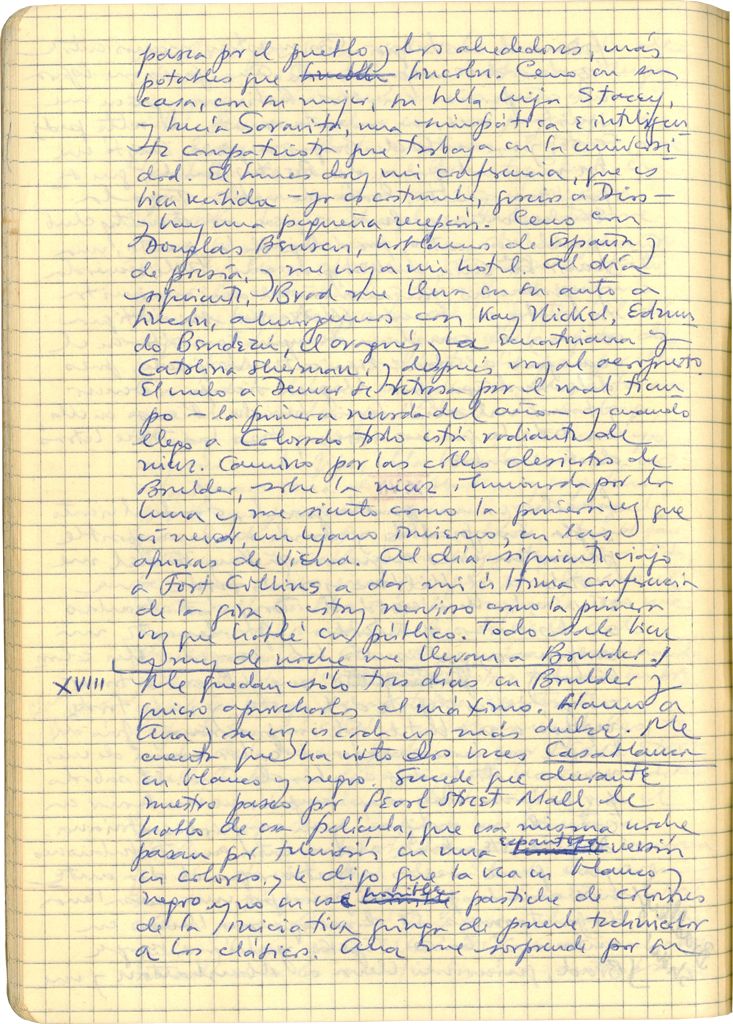 pasea por el pueblo y los alrededores, más
potables que Lincoln. Ceno en su
casa, con su mujer, su bella hija Stacey,
y Lucía Garavito, una simpática e inteligen
te compatriota que trabaja en la universi
dad. El lunes doy mi conferencia, que es
bien recibida — ya es costumbre, gracias a Dios —
y hay una pequeña recepción. Ceno con
Douglas Benson, hablamos de España y
de poesía, y me voy a mi hotel. Al día
siguiente, Brad me lleva en su auto a
Lincoln, almorzamos con Kay Nickel, Edmun
do Bendezú, el aragonés, la ecuatoriana y
Catalina Sherman, y después voy al aeropuerto.
El vuelo a Denver se retrasa por el mal tiem
po — la primera nevada del año — y cuando
llego a Colorado todo está radiante de
nieve. Camino por las calles desiertas de
Boulder, sobre la nieve iluminada por la
luna y me siento como la primera vez que
vi nevar, un lejano invierno, en las
afueras de Viena. Al día siguiente viajo
a Fort Collins a dar mi última conferencia
de la gira y estoy nervioso como la primera
vez que hablé en público. Todo sale bien
y muy de noche me llevan a Boulder.
XVIII Me quedan sólo tres días en Boulder y
quiero aprovecharlos al máximo. Llamo a
Ana y su voz es cada vez más dulce. Me
cuenta que ha visto dos veces Casablanca
en blanco y negro. Sucede que durante
nuestro paseo por Pearl Street Mall le
hablo de esa película, que esa misma noche
pasan por televisión en una espantosa versión
en colores, y le digo que la vea en blanco y
negro y no en ese horrible pastiche de colorines
de la iniciativa gringa de ponerle technicolor
a los clásicos. Ana me sorprende por su